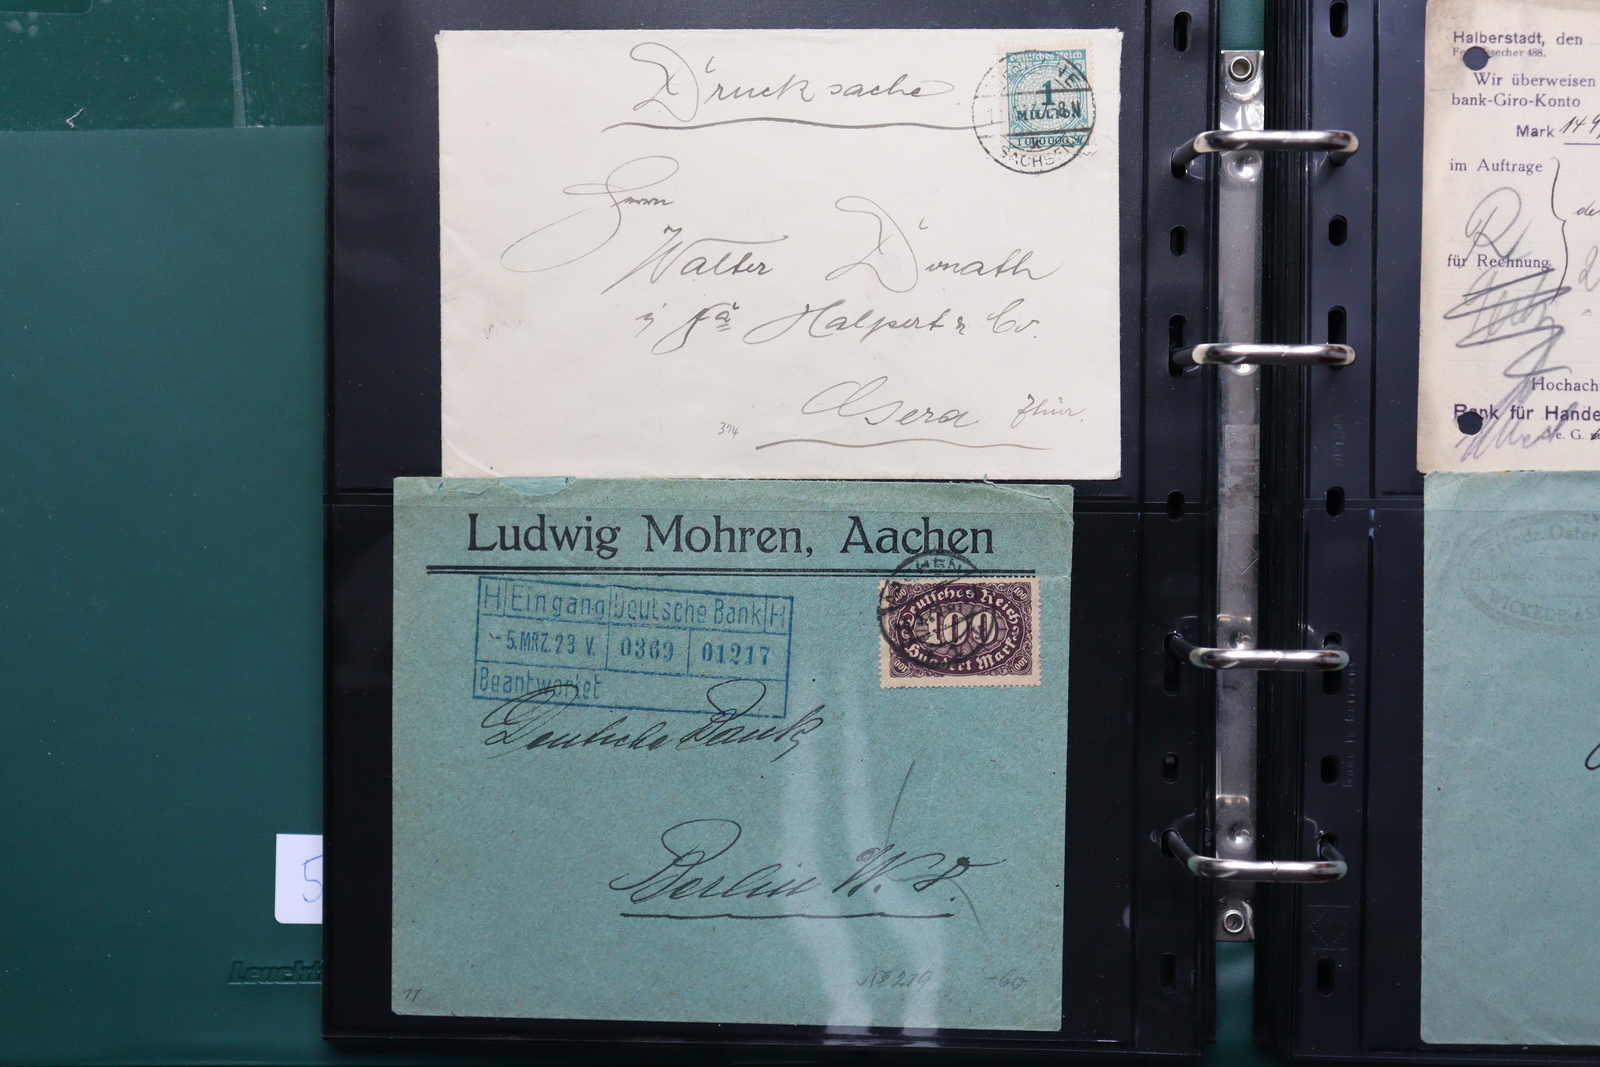 Drucksache
Deutsches Reich
1
SACHSEN
Herrn
Walter Donath
i/ Fa Halpert & Co.
Gera Thür.
314
Ludwig Mohren, Aachen
H Eingang Deutsche Bank H
-5. MRZ. 23 V. 0369 01217
Beantwortet
AACHEN
Deutsches Reich
100
Hundert Mark
Deutsche Bank
Berlin W. 8
№ 219 -60
11
5
Halberstadt, den
Wir überweisen
bank-Giro-Konto
Mark
im Auftrage
für Rechnung
Hochach
Bank für Hande